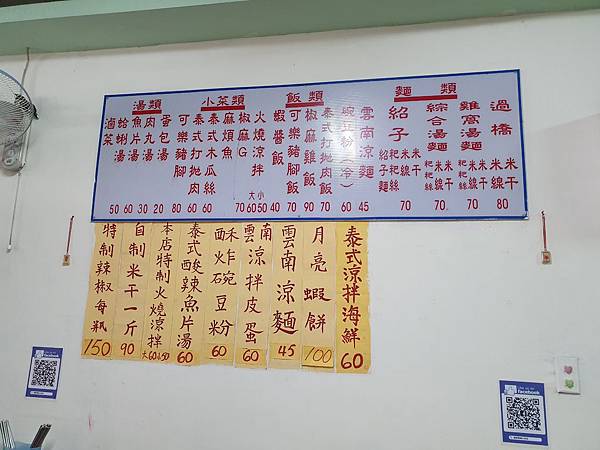 麵類
過橋 米干 米線 80
雞窩湯麵 米干 米線 粑粑絲 70
綜合湯麵 米干 米線 粑粑絲 70
紹子 米干 米線 粑粑絲 紹子麵 70
雲南涼麵 45
豌豆粉 冷 60
飯類
泰式打拋肉飯 70
椒麻雞飯 90
可樂豬腳飯 70
蝦醬飯 40
小菜類
火燒涼拌 大60 小50
椒麻G 70
麻煩魚
泰式木瓜絲 60
泰式打拋肉 60
可樂豬腳 80
湯類
蛋包湯 20
肉丸湯 30
魚片湯 60
蛤蜊湯 50
滷菜
泰式涼拌海鮮 60
月亮蝦餅 100
雲南涼麵 45
雲南涼拌皮蛋 60
西火石豆粉 稀炸碗 60
泰式酸辣魚片湯 60
本店特制火燒涼拌 大60小50
自制米干一斤 90
特制辣椒每瓶 150
facebook
facebook